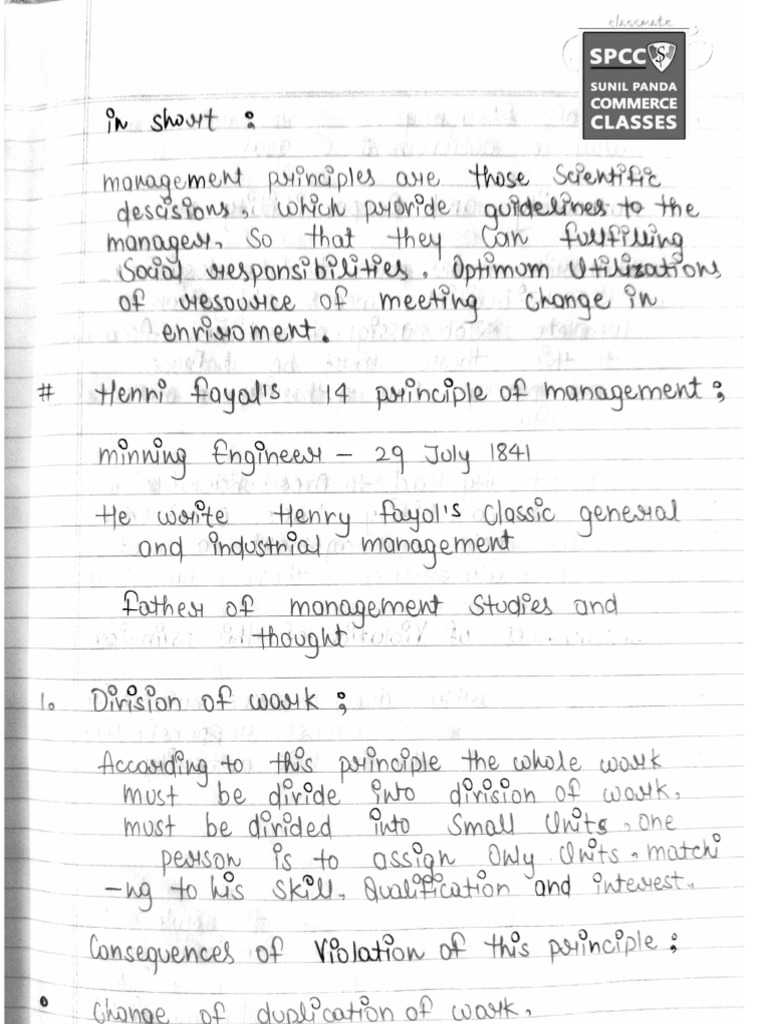 classmate
SPCC
SUNIL PANDA
COMMERCE
CLASSES
in short :
management principles are those Scientific
descisions, which provide guidelines to the
manager, So that they Can fullfilling
Social responsibilities, Optimum Utilizations
of resource of meeting change in
enriroment.
# Henni fayol's 14 principle of management :
minning Engineer – 29 July 1841
He write Henry fayol's Classic general
and industrial management
father of management Studies and
thought
1. Division of work :
According to this principle the whole work
must be divide into division of work,
must be divided into Small Units, one
person is to assign Only Units, matchi
-ng to his Skill, Qualification and interest.
Consequences of Violation of this principle :
• Change of duplication of work,